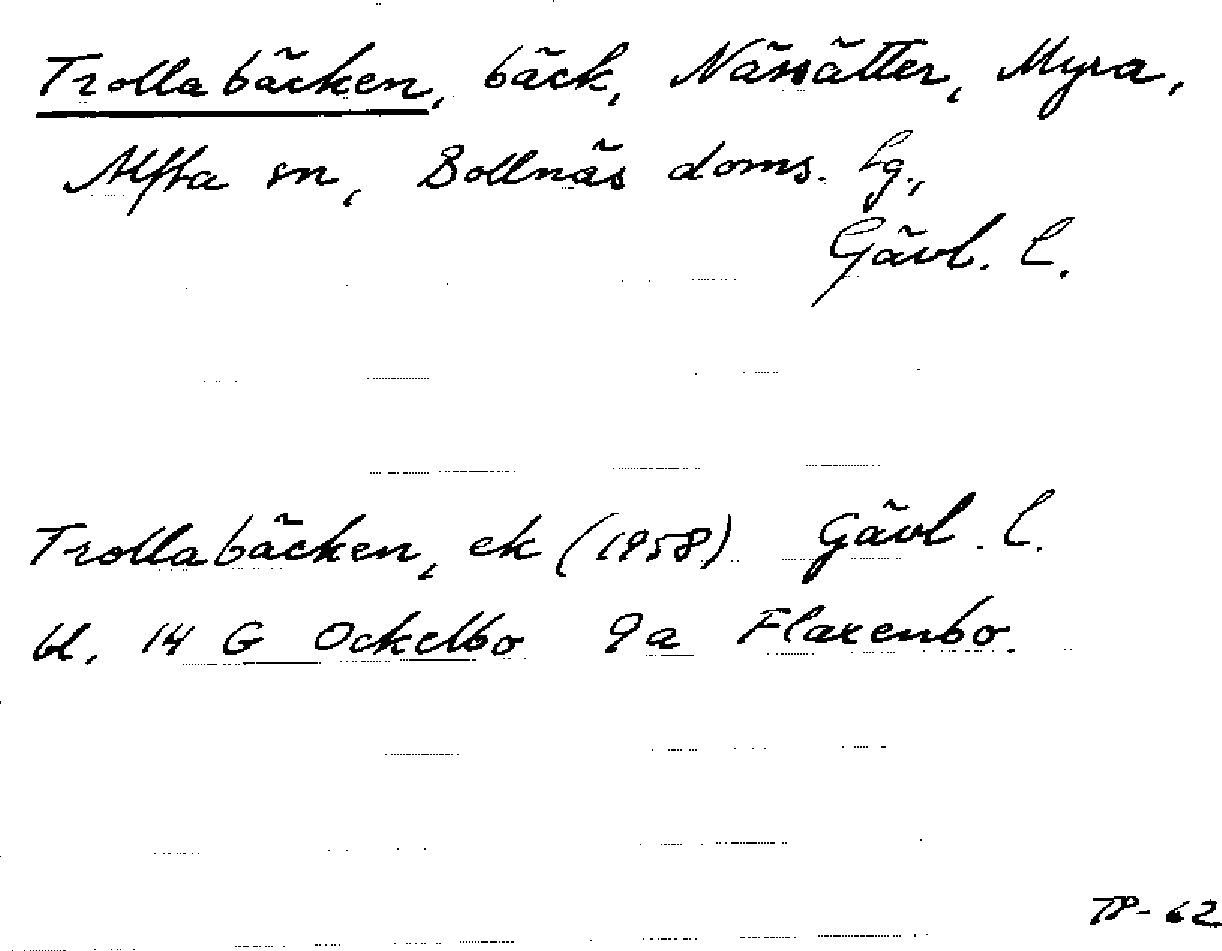 Trollabäcken, bäck, Nässätter, Myra,
Alfta sn, Bollnäs doms. lg.,
Gävl. l.
Trollabäcken, ek (1958) Gävl. l.
bl. 14 G Ockelbo 9a Flaxenbo.
TP-62